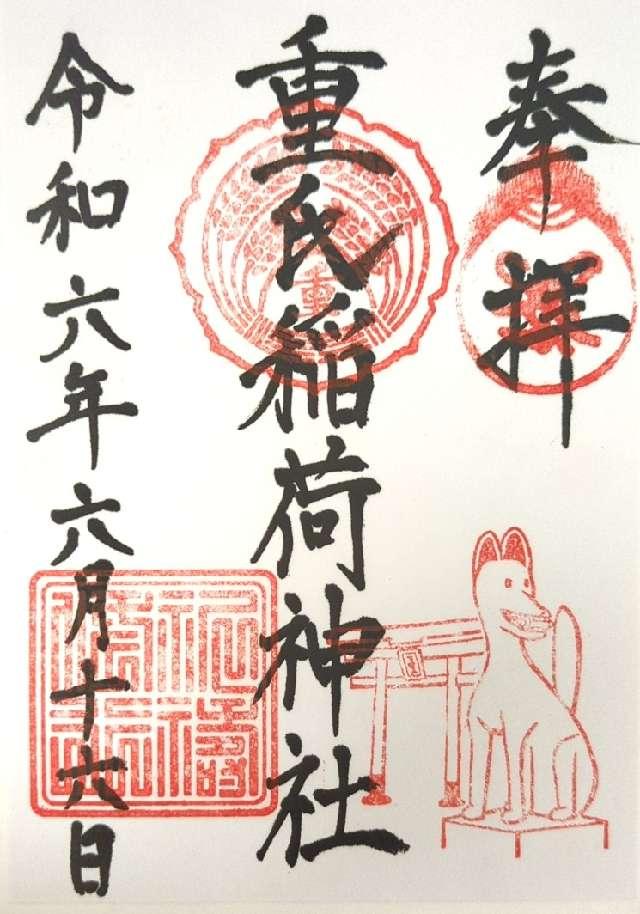 奉拝
重氏稲荷神社
令和六年六月十六日
重